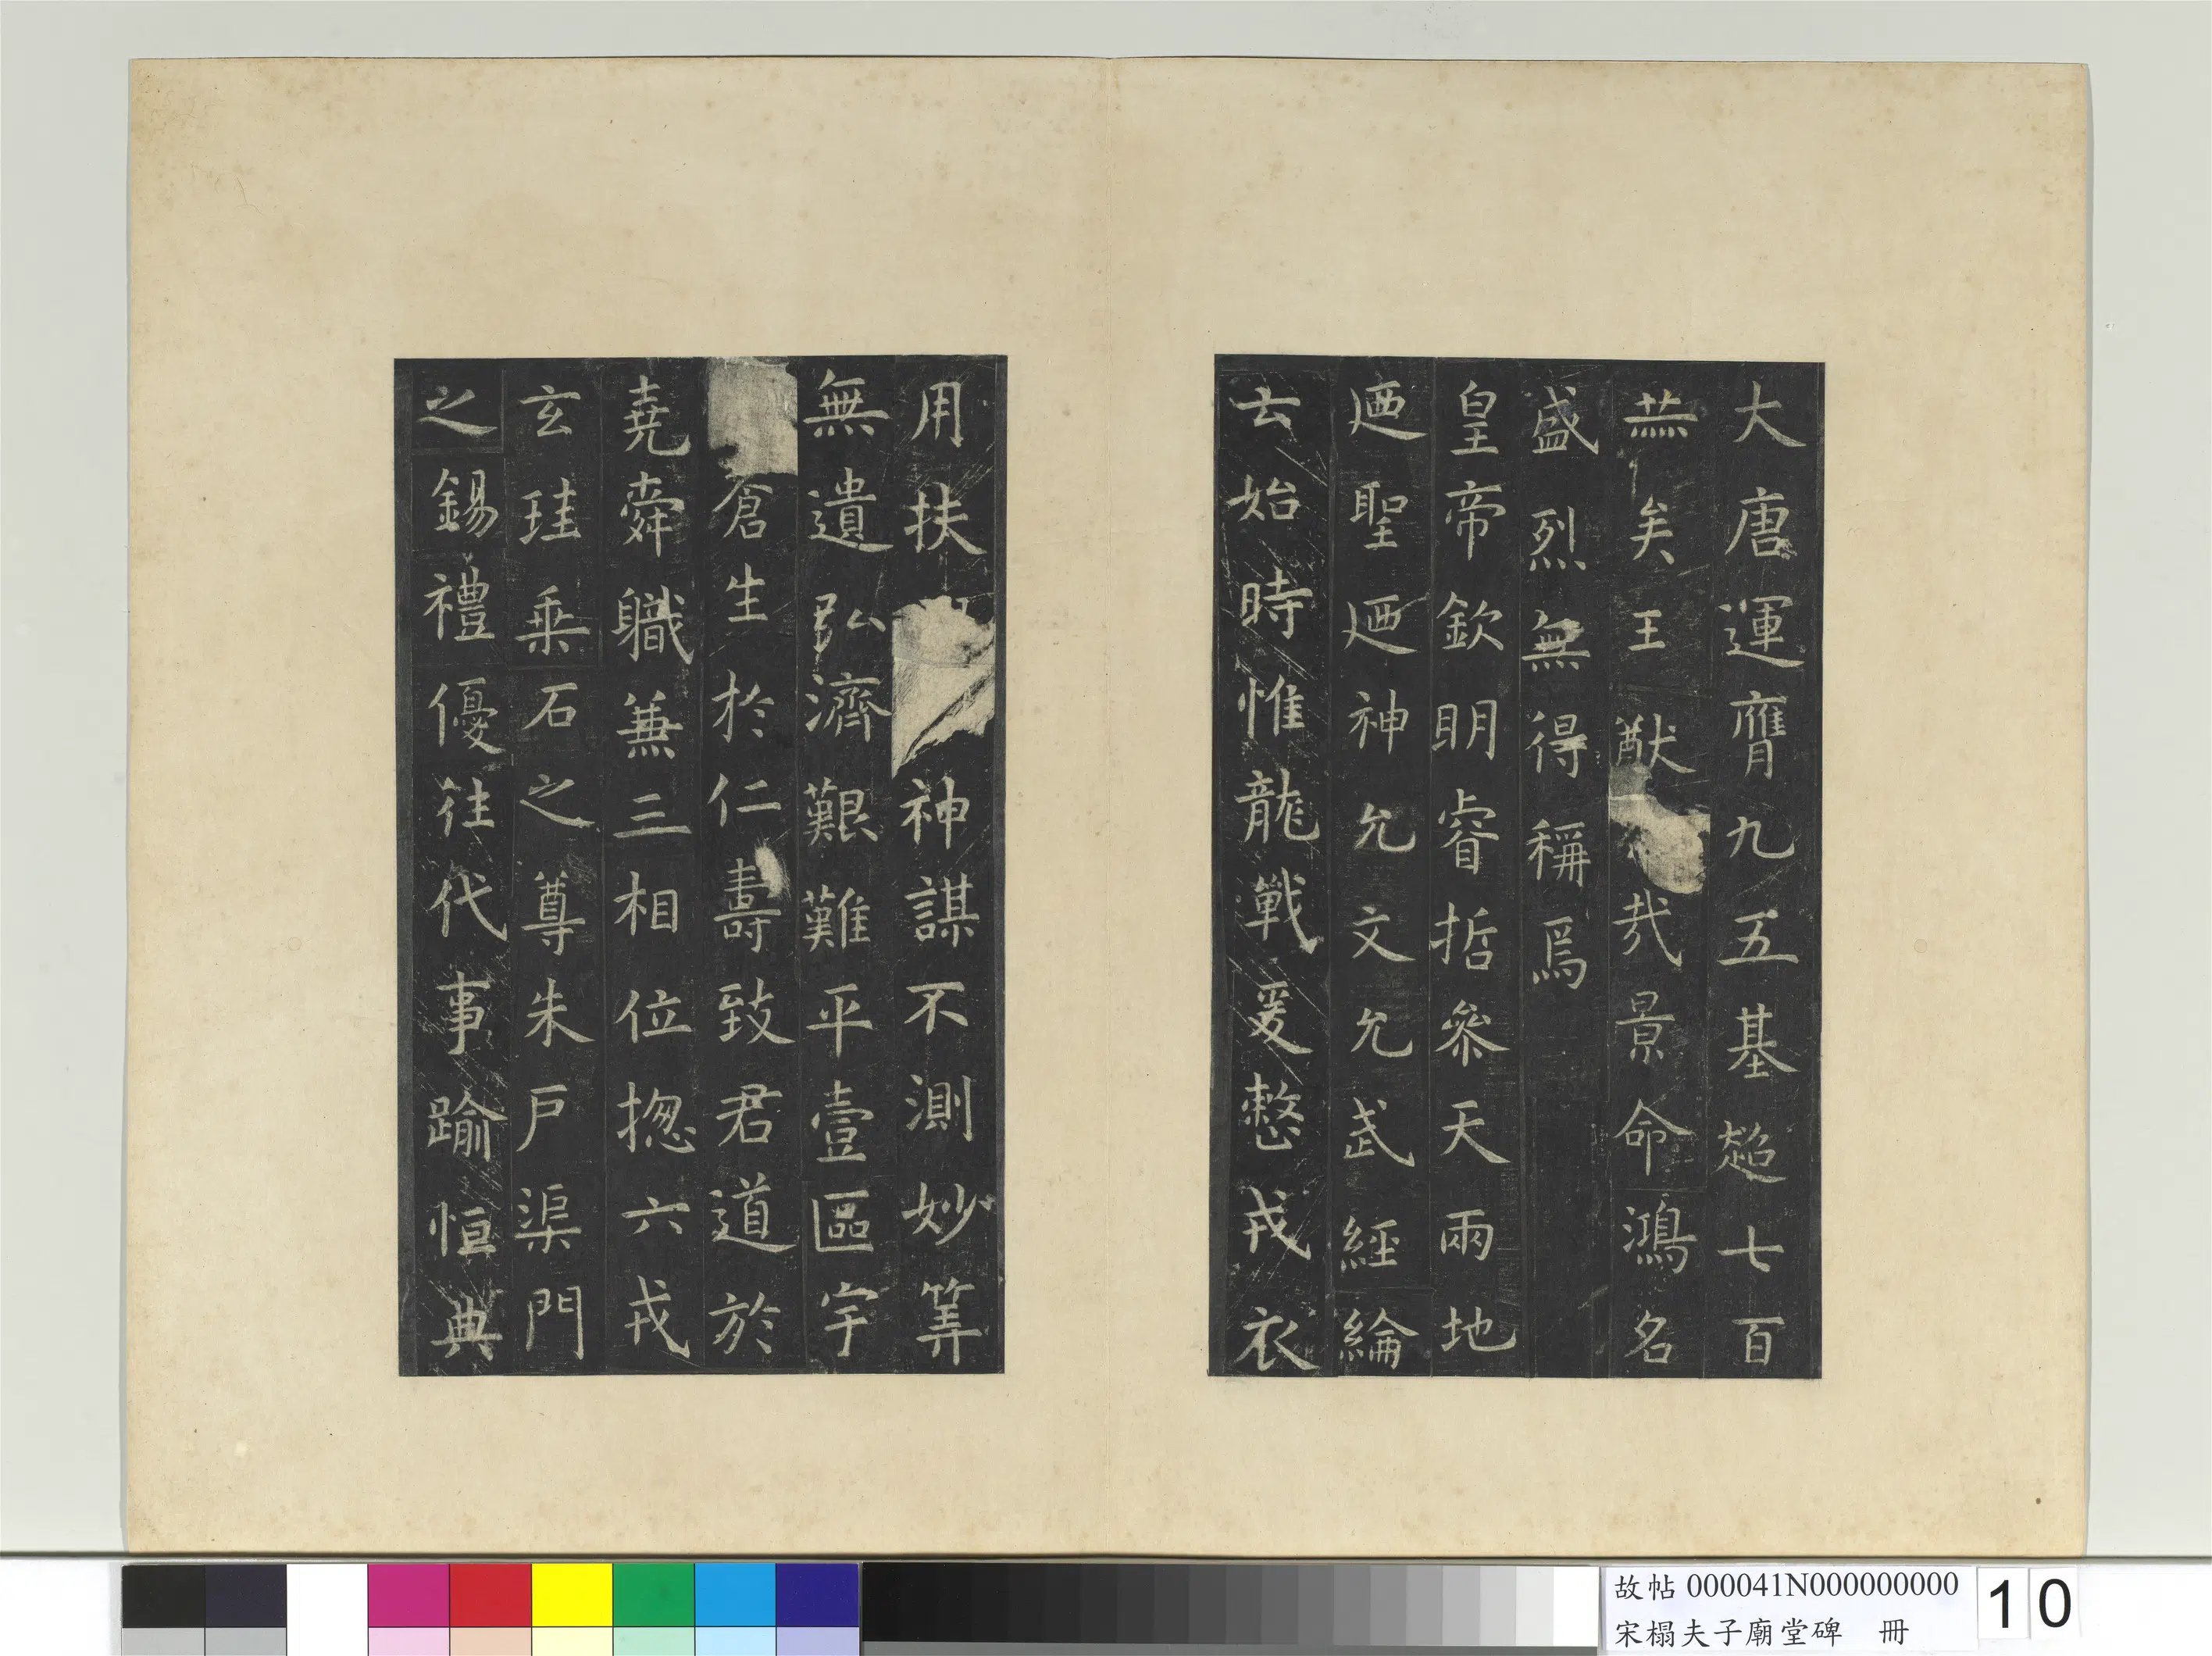 大唐運膺九五基超七百
𠀤矣王猷哉景命鴻名
盛烈無得稱焉
皇帝欽明睿哲參天兩地
廼聖廼神允文允武經綸
云始時惟龍戰爰整戎衣
用扶神謀不測妙筭
無遺弘濟艱難平壹區宇
倉生於仁壽致君道於
堯舜職兼三相位揔六戎
玄珪乗石之尊朱戶渠門
之錫禮優往代事踰恒典
故帖 000041N000000000
宋榻夫子廟堂碑 冊
10